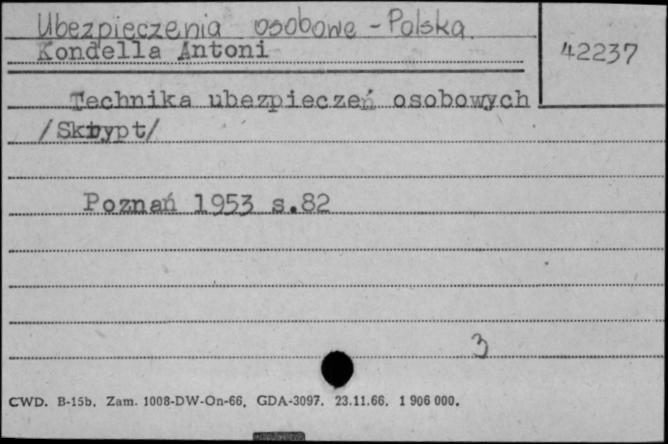 Ubezpieczenia osobowe - Polska.
Kondella Antoni
42237
Technika ubezpieczeń osobowych
/Skrypt/
Poznań 1953 s.82
3
CWD. B-15b. Zam. 1008-DW-On-66. GDA-3097. 23.11.66. 1 906 000.